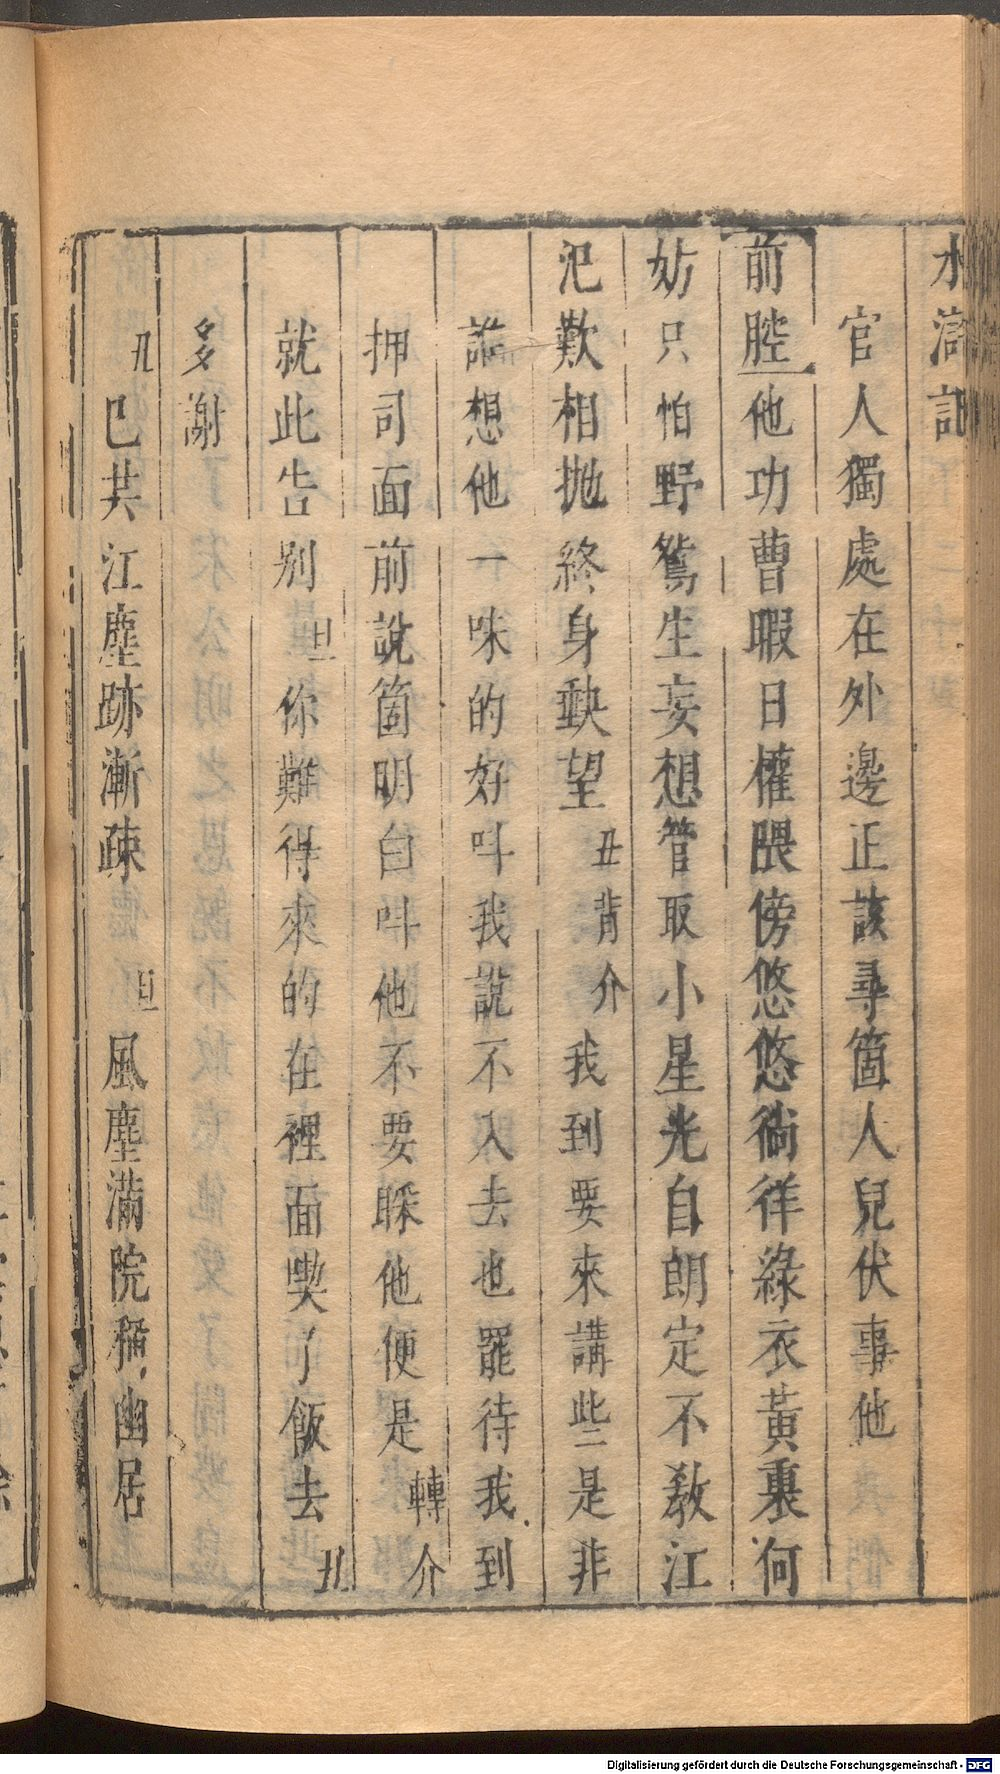 水滸記
官人獨處在外邊正該尋箇人兒伏事他
前腔他功曹暇日權隈傍悠悠徜徉綠衣黃裏何
妨只怕野鴛生妄想管取小星光自朗定不教江
汜歎相拋終身缺望丑背介我到要來講些是非
誰想他一味的好呌我說不入去也罷待我到
押司面前說箇明白呌他不要睬他便是轉介
就此告別旦你難得來的在裡面喫了飯去丑
多謝
丑已共江塵跡漸疎旦風塵滿院稱幽居
Digitalisierung gefördert durch die Deutsche Forschungsgemeinschaft - DFG